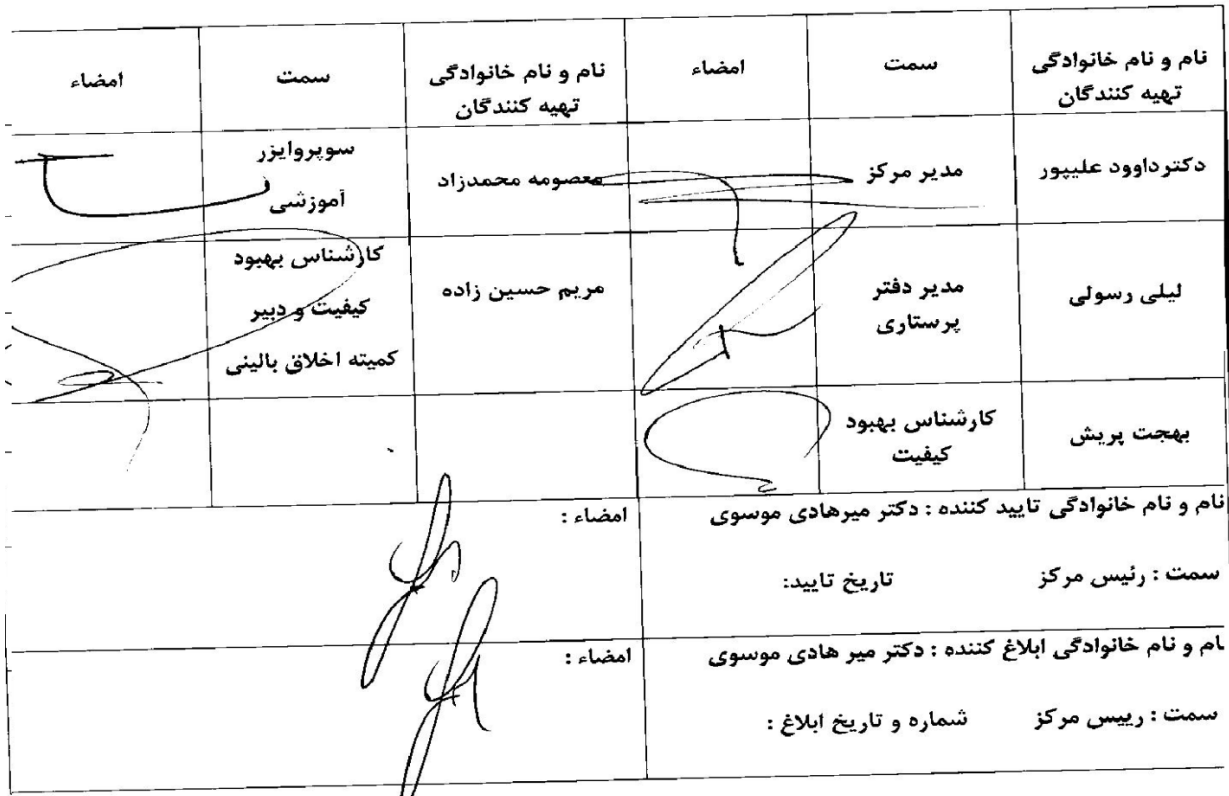 نام و نام خانوادگی
تهیه کنندگان
سمت
امضاء
نام و نام خانوادگی
تهیه کنندگان
سمت
امضاء
دکترداوود علیپور
مدیر مرکز
معصومه محمدزاد
سوپروایزر
آموزشی
لیلی رسولی
مدیر دفتر
پرستاری
مریم حسین زاده
کارشناس بهبود
کیفیت و دبیر
کمیته اخلاق بالینی
بهجت پریش
کارشناس بهبود
کیفیت
نام و نام خانوادگی تایید کننده : دکتر میرهادی موسوی
امضاء :
سمت : رئیس مرکز تاریخ تایید:
ام و نام خانوادگی ابلاغ کننده : دکتر میر هادی موسوی
امضاء :
سمت : رییس مرکز شماره و تاریخ ابلاغ :